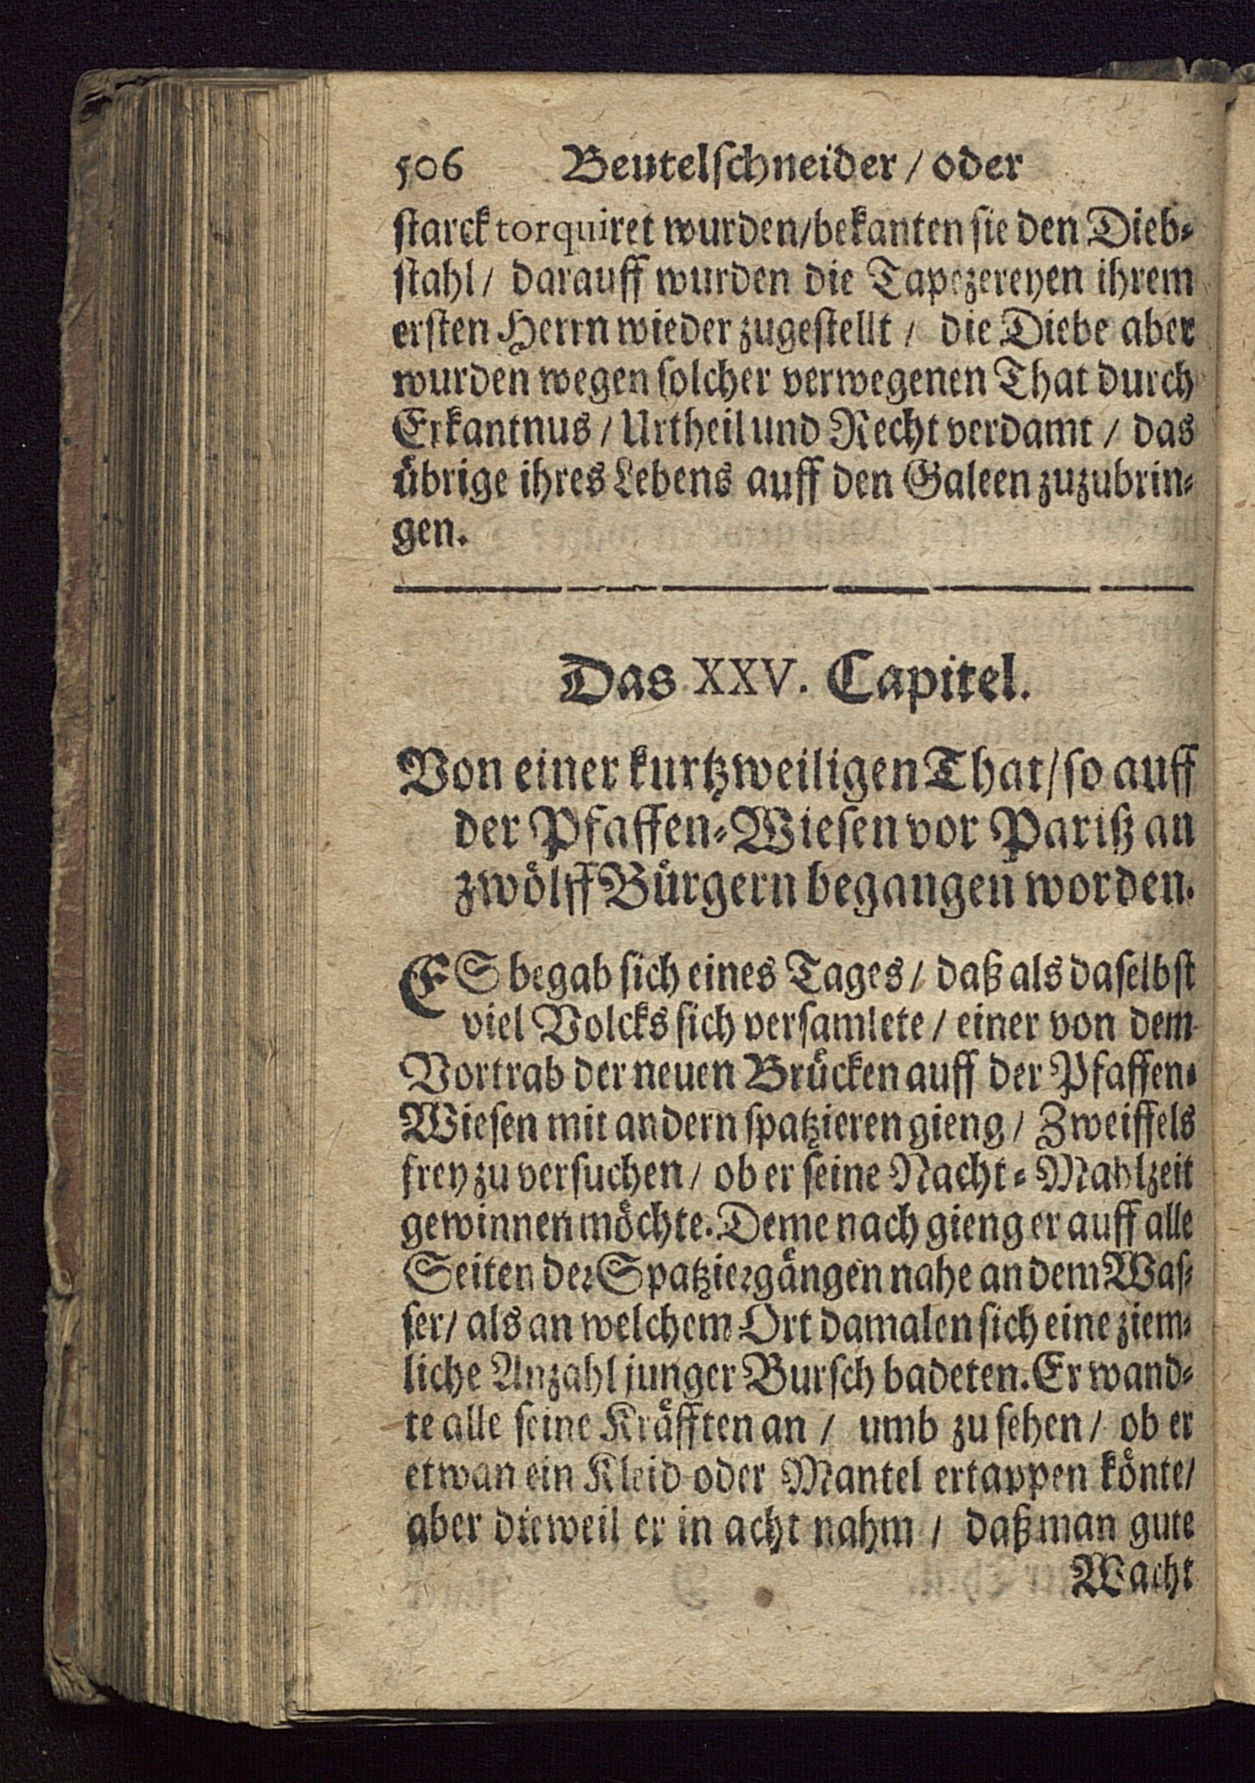 506 Beutelſchneider / oder
ſtarck torquiret wurden/bekanten ſie den Dieb⸗
ſtahl / darauff wurden die Tapezereyen ihrem
erſten Herrn wieder zugeſtellt / die Diebe aber
wurden wegen ſolcher verwegenen That durch
Erkantnus / Urtheil und Recht verdamt / das
übrige ihres Lebens auff den Galeen zuzubrin⸗
gen.
Das XXV. Capitel.
Von einer kurtzweiligen That/ſo auff
der Pfaffen⸗Wieſen vor Pariß an
zwölff Bürgern begangen worden.
ES begab ſich eines Tages / daß als daſelbſt
viel Volcks ſich verſamlete / einer von dem
Vortrab der neuen Brücken auff der Pfaffen⸗
Wieſen mit andern ſpatzieren gieng / Zweiffels
frey zu verſuchen / ob er ſeine Nacht⸗Mahlzeit
gewinnen möchte. Deme nach gieng er auff alle
Seiten der Spatziergängen nahe an dem Waſ⸗
ſer/ als an welchem Ort damalen ſich eine ziem⸗
liche Anzahl junger Burſch badeten. Er wand⸗
te alle ſeine Kräfften an / umb zu ſehen / ob er
etwan ein Kleid oder Mantel ertappen könte/
aber dieweil er in acht nahm / daß man gute
Wacht